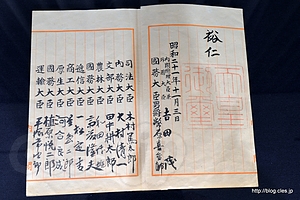 裕仁
昭和二十一年十一月三日
吉田茂
國務大臣男爵幣原喜重郎
司法大臣木村篤太郎
内務大臣大村清一
文部大臣田中耕太郎
農林大臣
國務大臣斎藤隆夫
逓信大臣一松定吉
商工大臣星島二郎
厚生大臣河合良成
國務大臣植原悦二郎
運輸大臣平塚常次郎
http://blog.cles.jp